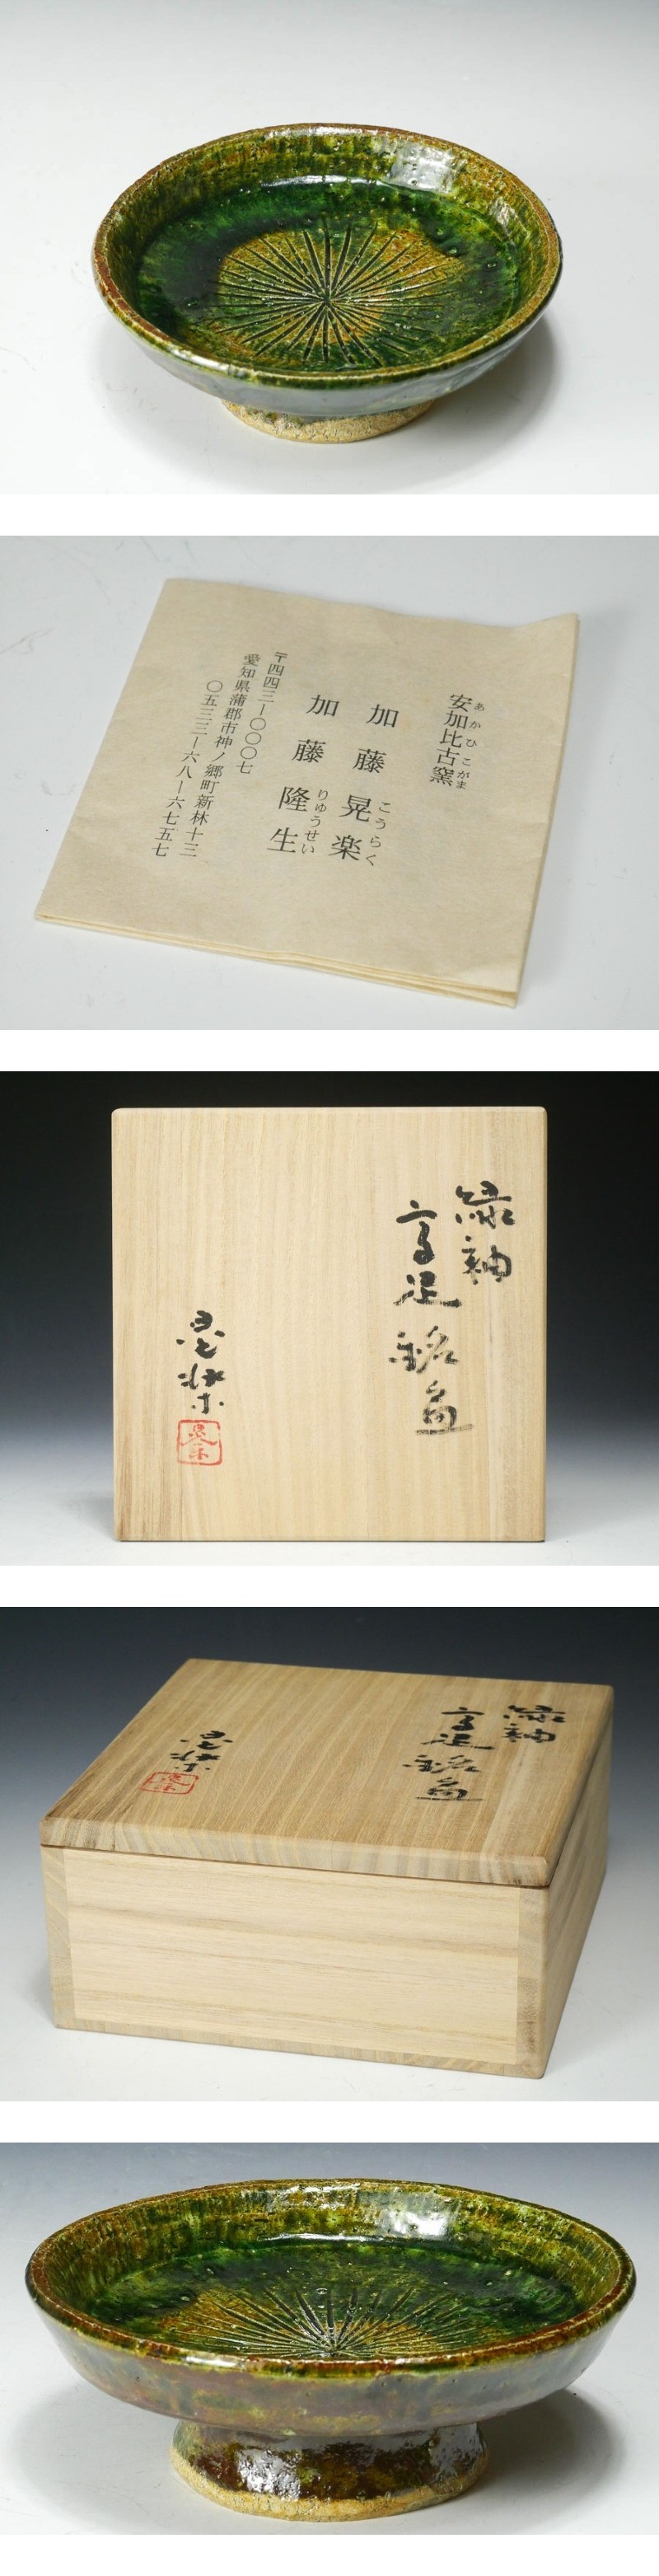 安加比古窯
あかひこがま
加藤晃楽
こうらく
加藤隆生
りゅうせい
〒四四三ー〇〇〇七
愛知県蒲郡市神ノ郷町新林十三
〇五三三ー六八ー六七五七
緑釉
高足銘皿
晃楽
晃楽
緑釉
高足銘皿
晃楽
晃楽